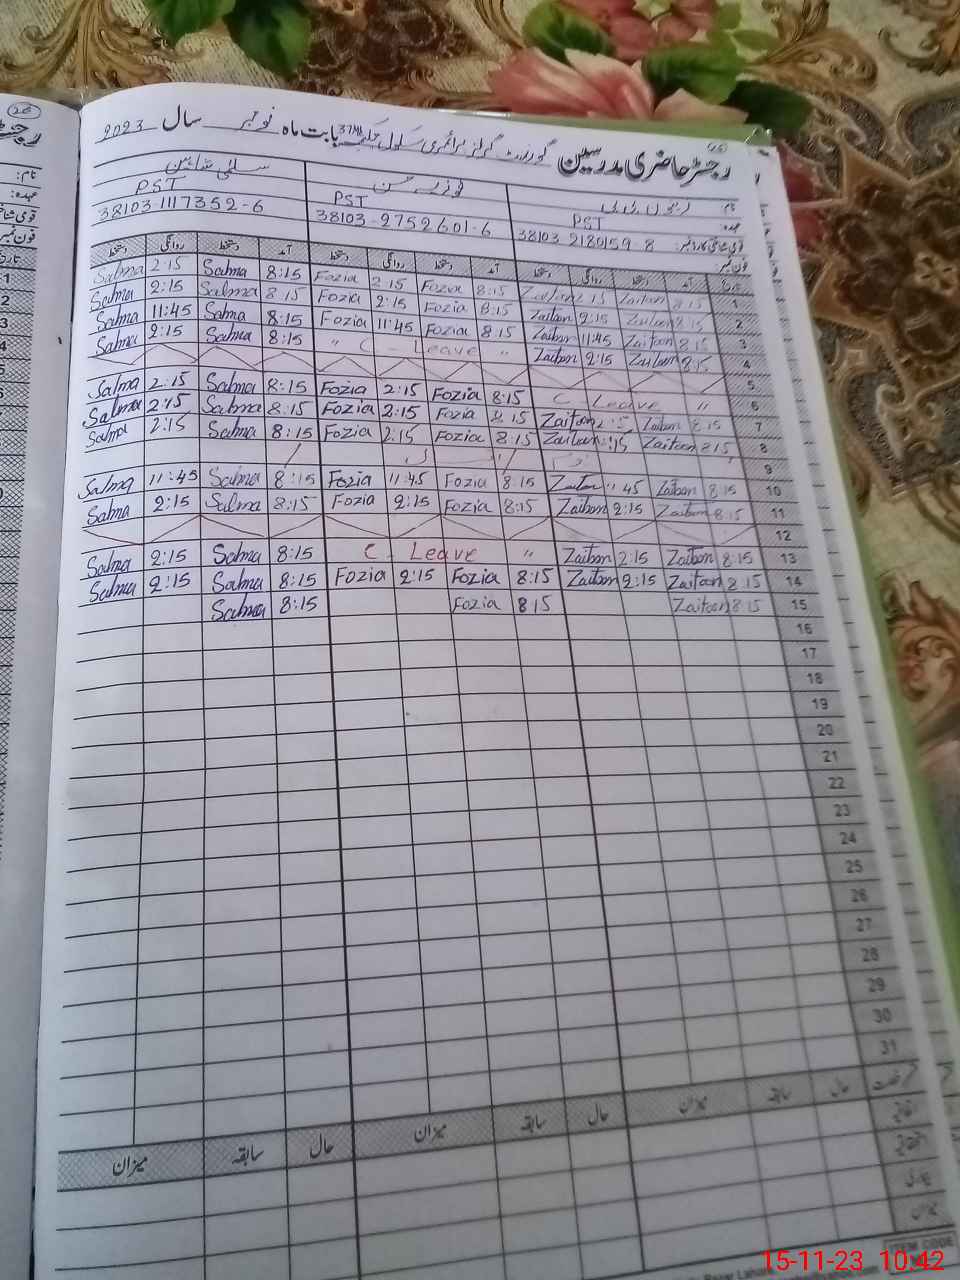 رجسٹر حاضری مدرسین گورنمنٹ گرلز پرائمری سکول چک 37ML بابت ماہ نومبر سال 2023
نام فوزیہ حسن سلمیٰ شاہین
عہدہ PST PST PST
قومی شناختی کارڈ نمبر: 38103 2180159-8 38103-2752601-6 38103-1117352-6
فون نمبر:
تاریخ آمد دستخط روانگی دستخط آمد دستخط روانگی دستخط آمد دستخط روانگی دستخط
Salma 2:15 Salma 8:15 Fozia 2:15 Fozia 8:15 Zaitoon 2:15 Zaitoon 8:15 1
Salma 2:15 Salma 8:15 Fozia 2:15 Fozia 8:15 Zaitoon 2:15 Zaitoon 8:15 2
Salma 11:45 Salma 8:15 Fozia 11:45 Fozia 8:15 Zaitoon 11:45 Zaitoon 8:15 3
Salma 2:15 Salma 8:15 " C - Leave " Zaitoon 2:15 Zaitoon 8:15 4
5
Salma 2:15 Salma 8:15 Fozia 2:15 Fozia 8:15 C - Leave " 6
Salma 2:15 Salma 8:15 Fozia 2:15 Fozia 8:15 Zaitoon 2:15 Zaitoon 8:15 7
Salma 2:15 Salma 8:15 Fozia 2:15 Fozia 8:15 Zaitoon 2:15 Zaitoon 8:15 8
9
Salma 11:45 Salma 8:15 Fozia 11:45 Fozia 8:15 Zaitoon 11:45 Zaitoon 8:15 10
Salma 2:15 Salma 8:15 Fozia 2:15 Fozia 8:15 Zaitoon 2:15 Zaitoon 8:15 11
12
Salma 2:15 Salma 8:15 C - Leave " Zaitoon 2:15 Zaitoon 8:15 13
Salma 2:15 Salma 8:15 Fozia 2:15 Fozia 8:15 Zaitoon 2:15 Zaitoon 8:15 14
Salma 8:15 Fozia 8:15 Zaitoon 8:15 15
16
17
18
19
20
21
22
23
24
25
26
27
28
29
30
31
حال سابقہ میزان حال سابقہ میزان حال سابقہ میزان
اتفاقیہ
میزان
ITEM CODE
15-11-23 10:42